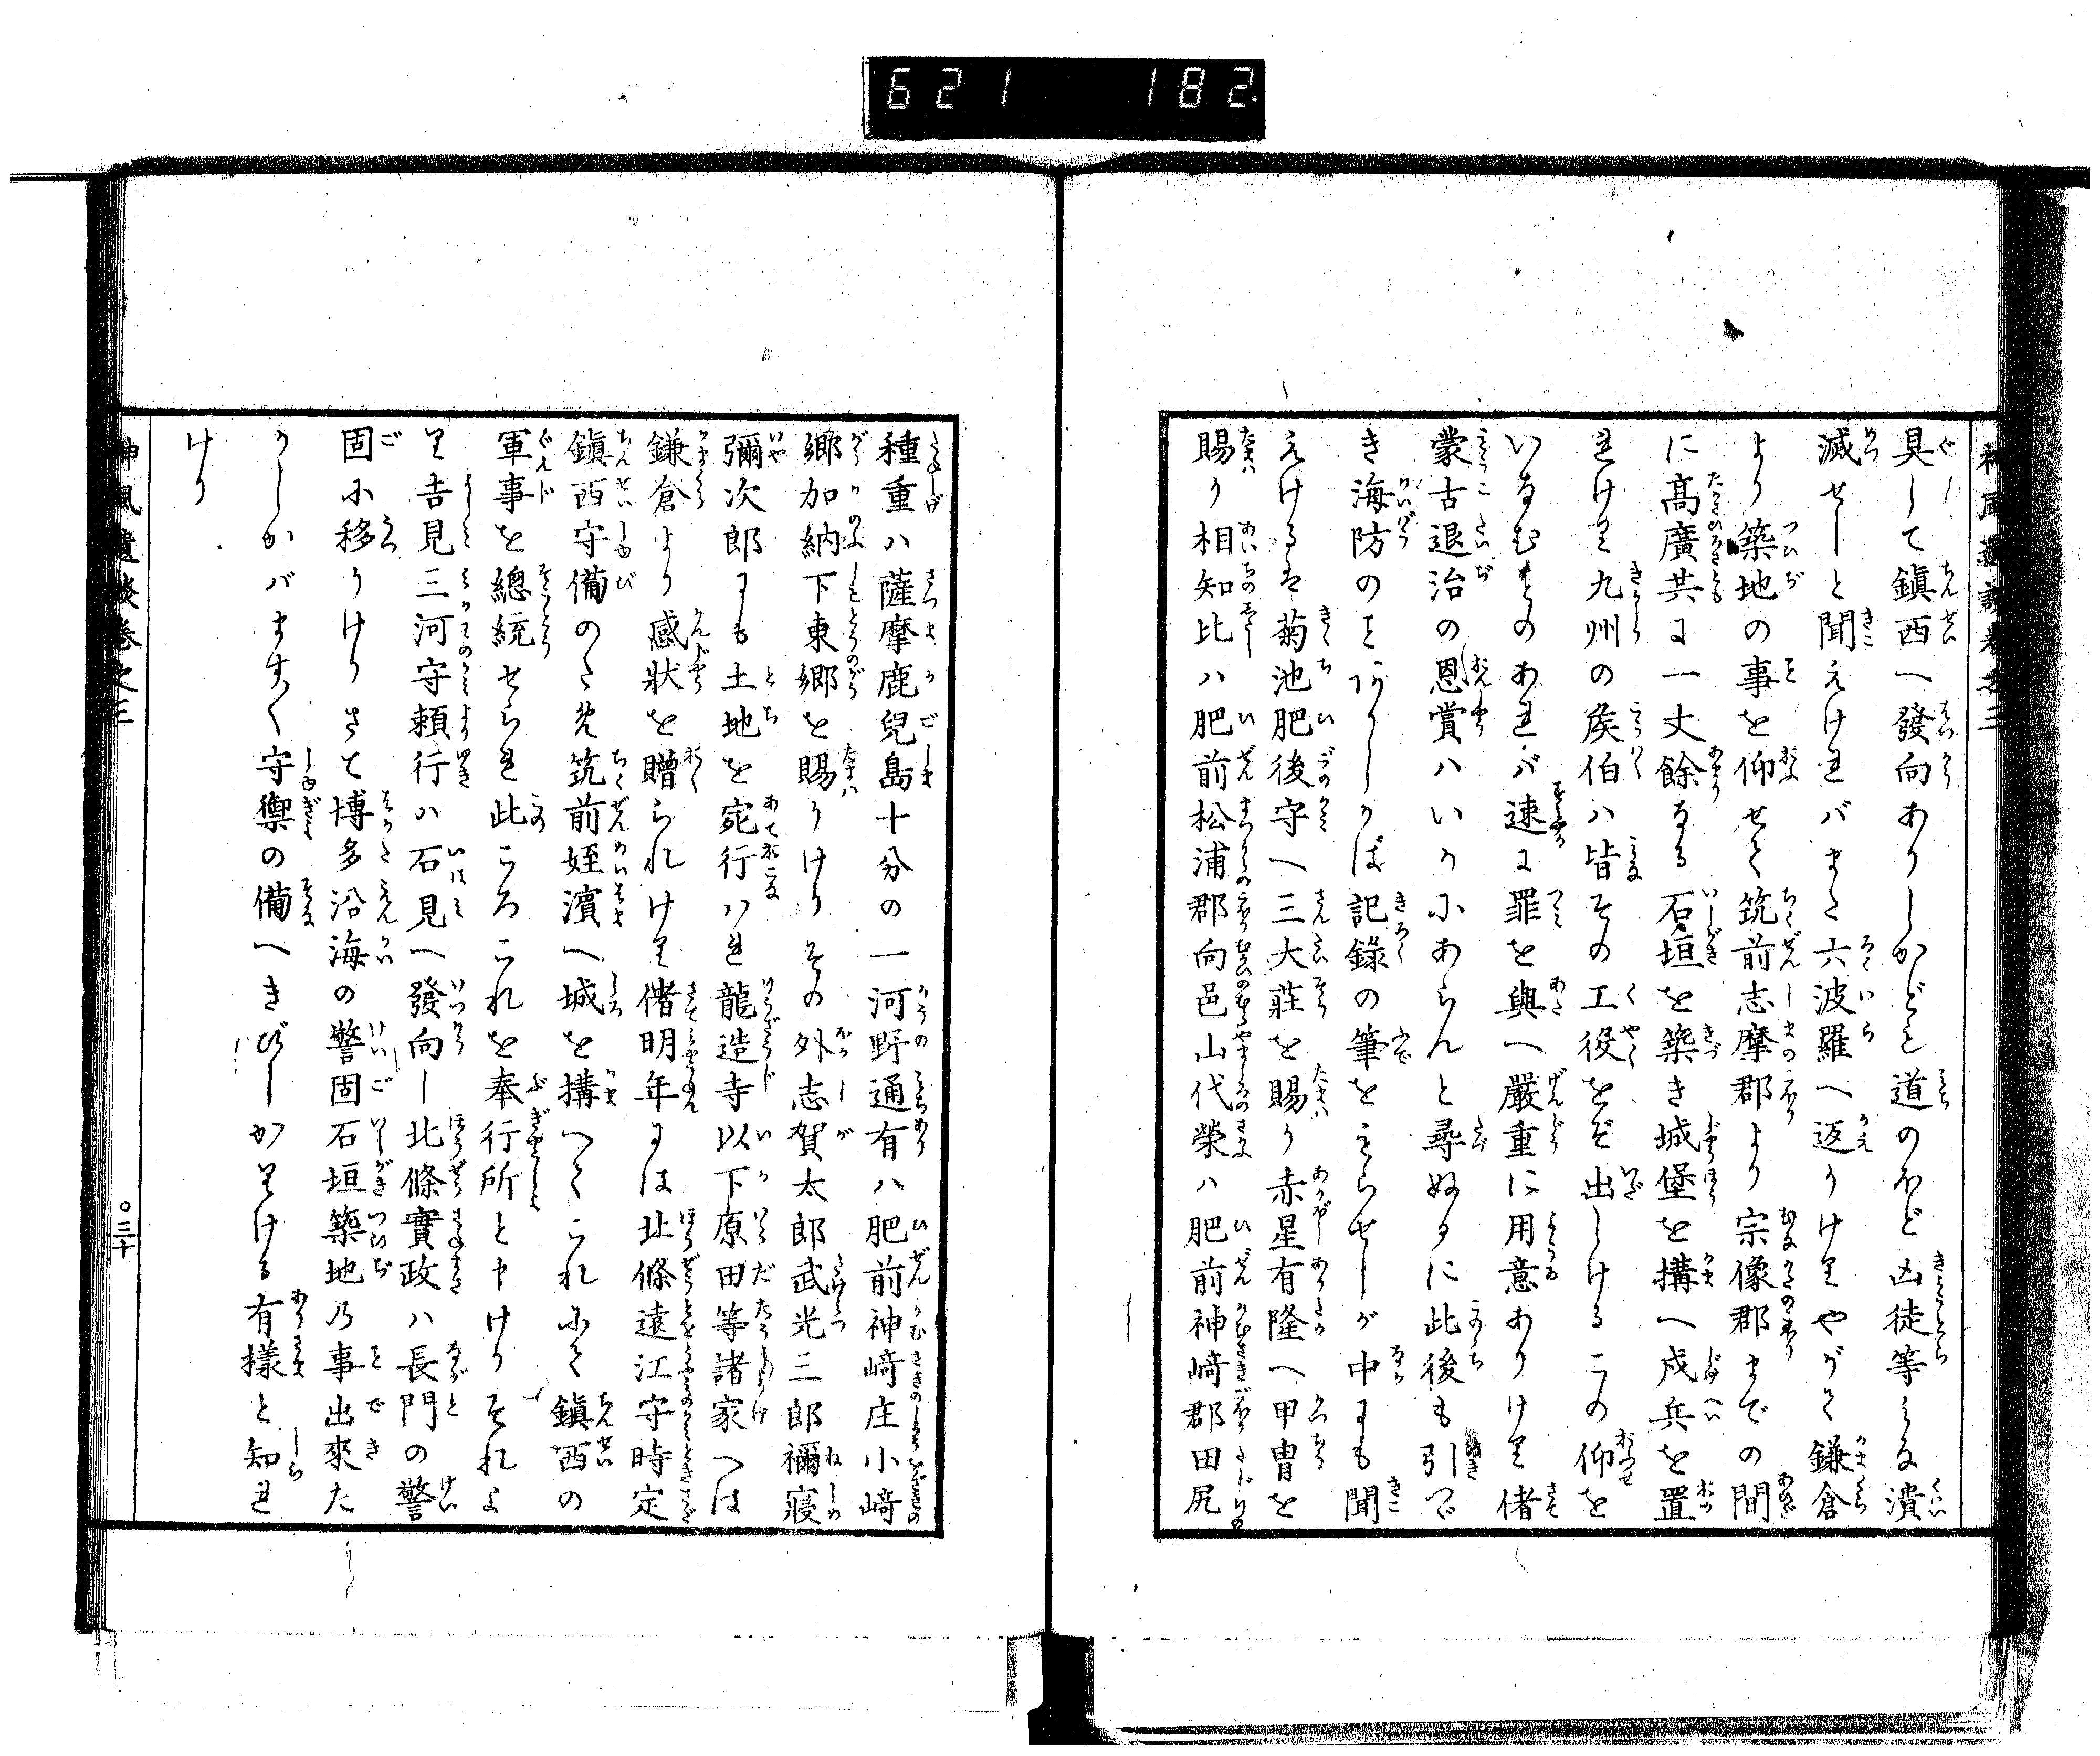 621 182
具して鎭西へ發向ありしかども道のほど凶徒等みな潰
滅せしと聞えけれバまた六波羅へ返りけりやがて鎌倉
より築地の事を仰せて筑前志摩郡より宗像郡までの間
に髙廣共に一丈餘なる石垣を築き城堡を搆へ戍兵を置
れけり九州の矦伯ハ皆その工役をぞ出しけるこの仰を
いなむものあれバ速に罪を與へ嚴重に用意ありけり偖
蒙古退治の恩賞ハいかにあらんと尋ぬるに此後も引つゞ
き海防のことありしかば記録の筆をもらせしが中にも聞
えけるは菊池肥後守へ三大莊を賜り赤星有隆へ甲冑を
賜り相知比ハ肥前松浦郡向邑山代榮ハ肥前神﨑郡田尻
種重ハ薩摩鹿兒島十分の一河野通有ハ肥前神﨑庄小﨑
郷加納下東郷を賜りけりその外志賀太郎武光三郎禰寢
彌次郎にも土地を宛行はれ龍造寺以下原田等諸家へは
鎌倉より感狀を贈られけり偖明年には北條遠江守時定
鎭西守備のため筑前姪濱へ城を搆へてこれにて鎭西の
軍事を總統せられ此ころこれを奉行所と申けりそれよ
り吉見三河守頼行ハ石見へ發向し北條實政ハ長門の警
固に移りけりさて博多沿海の警固石垣築地乃事出來た
りしかバます〳〵守禦の備へきびしかりける有樣と知れ
けり
神風遺談卷之三
三十